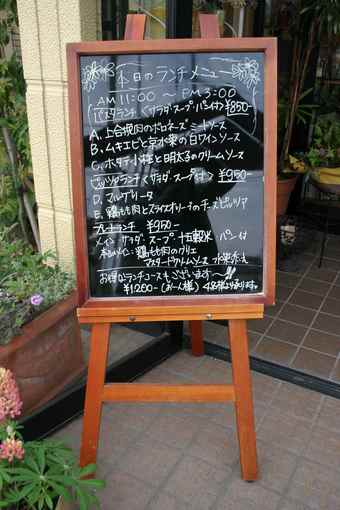 本日のランチメニュー
AM 11:00 ～ PM 3:00
パスタランチ〈サラダ・スープ・パン付〉¥850-
A. 上合挽肉のボロネーズミートソース
B. ムキエビと京水菜の白ワインソース
C. ホタテ小柱と明太子のクリームソース
ピッツァランチ〈サラダ・スープ付〉¥950-
D. マルゲリータ
E. 鶏もも肉とスライスオリーブのチーズピッツァ
プレートランチ ¥950-
メイン サラダ・スープ 十五穀米 パン付
本日のメイン: 鶏もも肉のグリエ
マスタードクリームソース 水菜添え
お得なランチコースもございます～!!
¥1200-(お一人様)